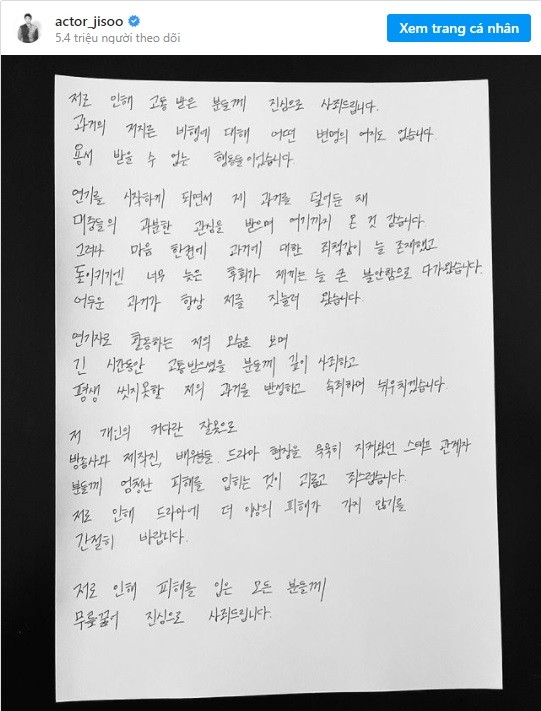 actor_jisoo
5.4 triệu người theo dõi
Xem trang cá nhân
저로 인해 고통 받은 분들께 진심으로 사죄드립니다.
과거의 저지른 비행에 대해 어떤 변명의 여지도 없습니다.
용서 받을 수 없는 행동들이었습니다.
연기를 시작하게 되면서 제 과거를 덮어둔 채
대중들의 과분한 관심을 받으며 여기까지 온 것 같습니다.
그러나 마음 한편에 과거에 대한 죄책감이 늘 존재했고
돌이키기엔 너무 늦은 후회가 저에게는 늘 큰 불안함으로 다가왔습니다.
어두운 과거가 항상 저를 짓눌러 왔습니다.
연기자로 활동하는 저의 모습을 보며
긴 시간동안 고통 받으셨을 분들께 깊이 사죄하고
평생 씻지못할 저의 과거를 반성하고 속죄하며 뉘우치겠습니다.
저 개인의 커다란 잘못으로
방송사와 제작진, 배우분들, 드라마 현장을 묵묵히 지켜왔던 스태프 관계자
분들께 엄청난 피해를 입히는 것이 괴롭고 죄스럽습니다.
저로 인해 드라마에 더 이상의 피해가 가지 않기를
간절히 바랍니다.
저로 인해 피해를 입은 모든 분들께
무릎꿇어 진심으로 사죄드립니다.